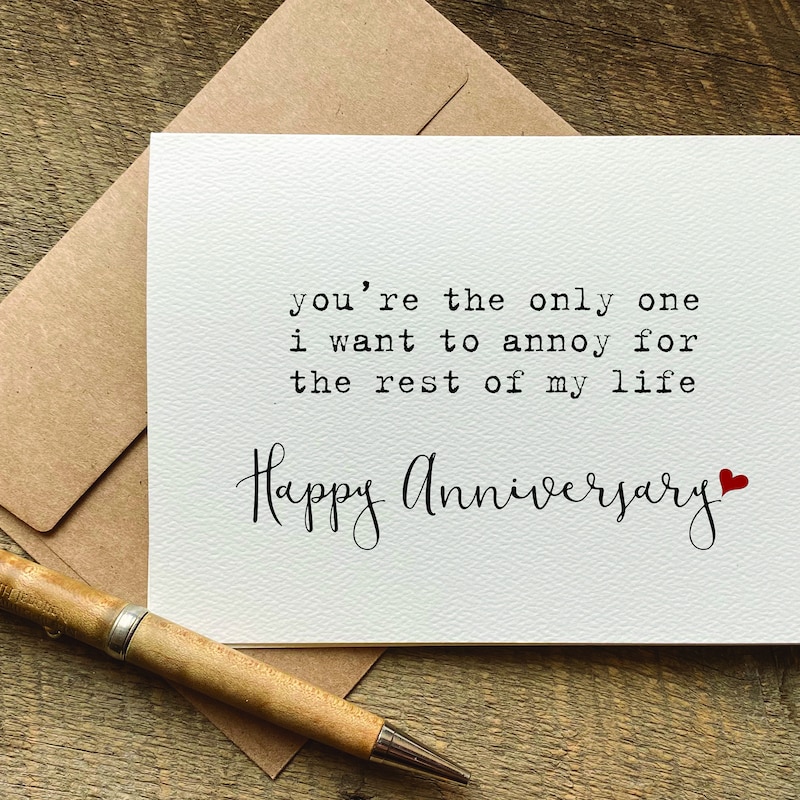 you're the only one
i want to annoy for
the rest of my life
Happy Anniversary